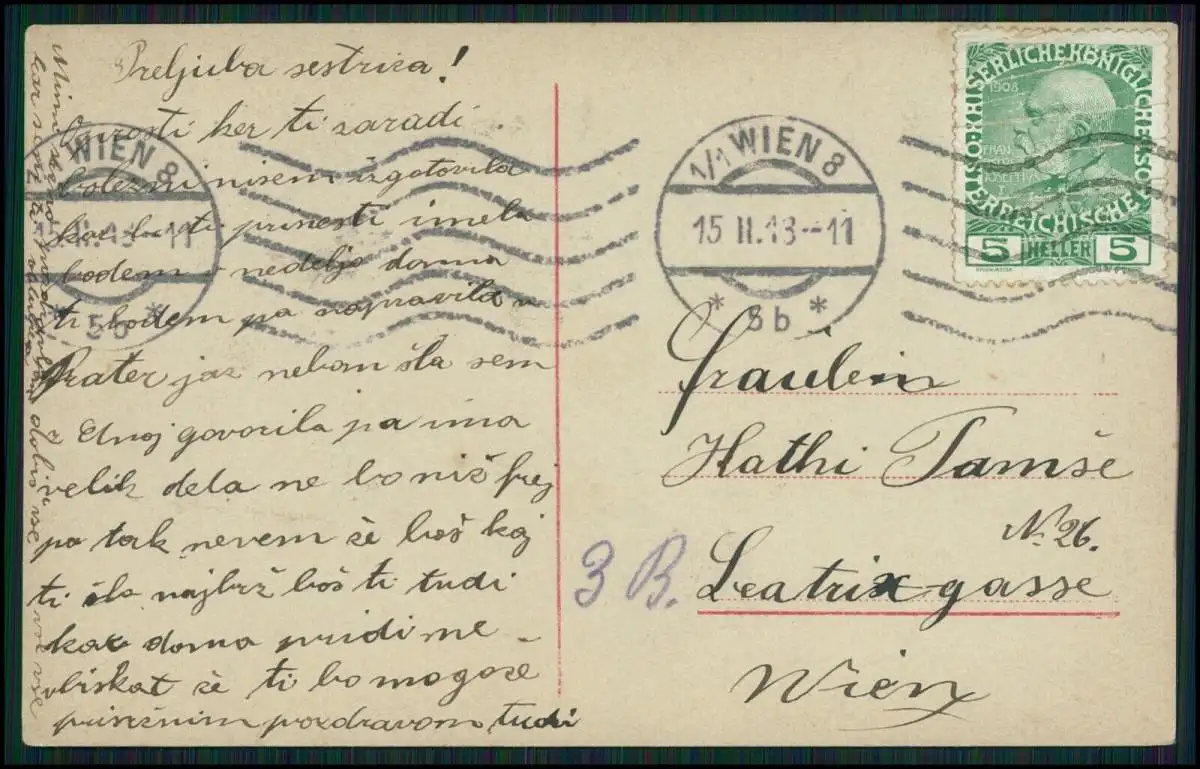 Preljuba sestrica!
Oprosti ker ti zaradi
bolezni nisem izgotovila
kar bi ti prinesti imela
bodem v nedeljo doma
ti bodem pa napravila v
Prater jaz nebom šla sem
z Unoj govorila pa ima
velik dela ne bo niš frej
pa tak nevem če boš kaj
ti šla najbrž boš ti tudi
kar doma pridi me
obiskat če ti bo mogoče
prisrčnim pozdravom tudi
Mimi
kar se
dobiš vse
WIEN 8
15.II.13-11
5b
1/1 WIEN 8
15 II.13--11
* 5b *
KAISERLICHE KÖNIGLICHE ÖSTERREICHISCHE
1908
FRANZ JOSEPH I
5 HELLER 5
Fräulein
Hathi Tamše
No 26.
3 B. Beatrixgasse
Wien